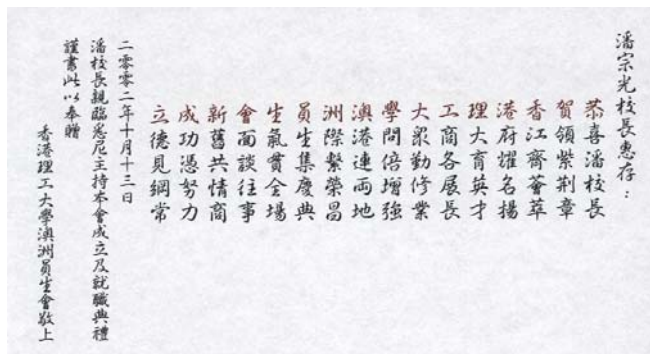 潘宗光校長惠存：
恭喜潘校長
賀領紫荊章
香江齊薈萃
港府耀名揚
理大育英才
工商各展長
大眾勤修業
學問倍增強
澳港連両地
洲際繫榮昌
員生集慶典
生氣貫全場
會面談往事
新舊共情商
成功憑努力
立德見綱常
二零零二年十月十三日
潘校長親臨悉尼主持本會成立及就職典禮
謹書此以奉贈
香港理工大學澳洲員生會敬上